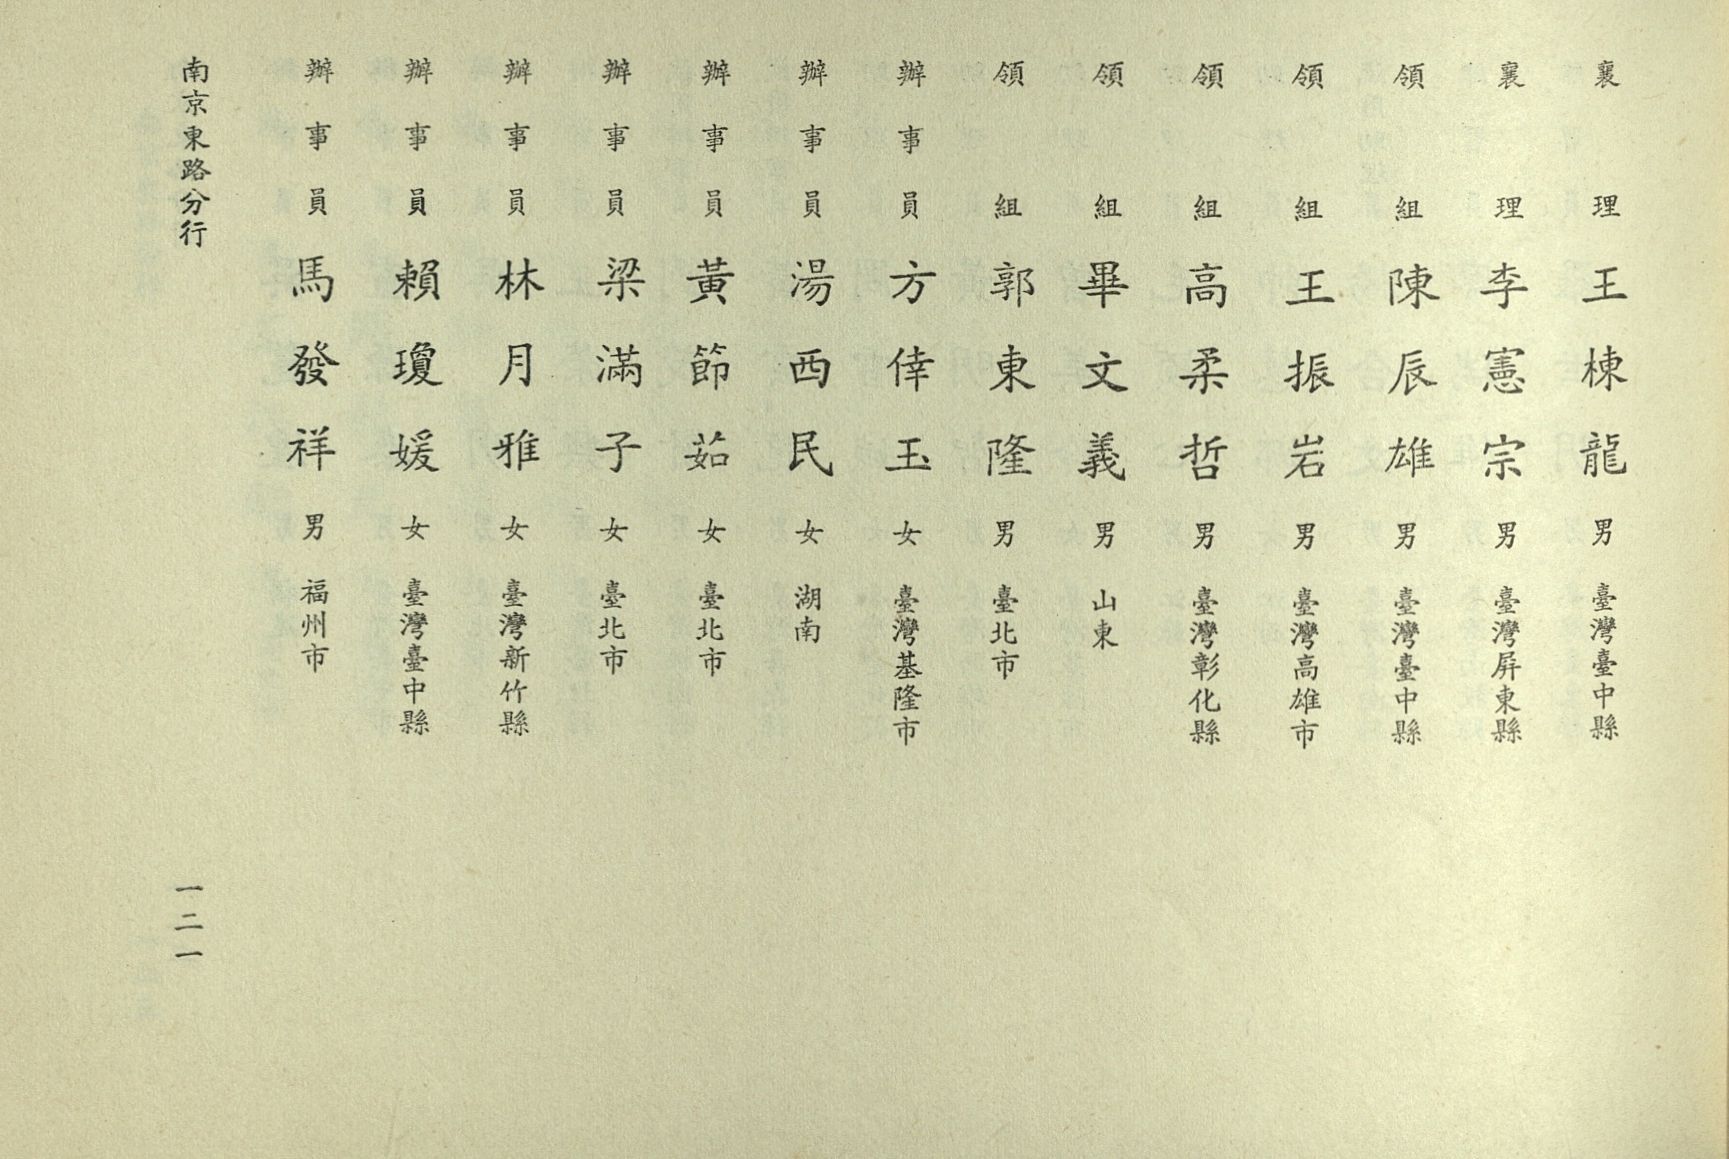 襄理王棟龍男臺灣臺中縣
襄理李憲宗男臺灣屏東縣
領組陳辰雄男臺灣臺中縣
領組王振岩男臺灣高雄市
領組高柔哲男臺灣彰化縣
領組畢文義男山東
領組郭東隆男臺北市
辦事員方倖玉女臺灣基隆市
辦事員湯西民女湖南
辦事員黃節茹女臺北市
辦事員梁滿子女臺北市
辦事員林月雅女臺灣新竹縣
辦事員賴瓊媛女臺灣臺中縣
辦事員馬發祥男福州市
南京東路分行
一二一